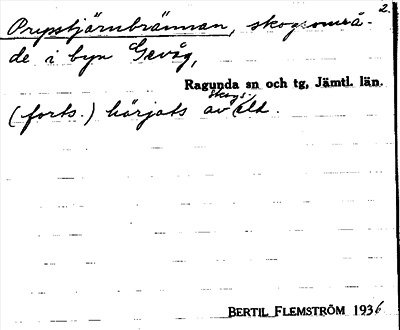 2.
Prysstjärnbrännan, skogsområ-
de i byn Gevåg,
Ragunda sn och tg, Jämtl. län.
skogs-
(forts.) härjats av eld.
BERTIL FLEMSTRÖM 1936